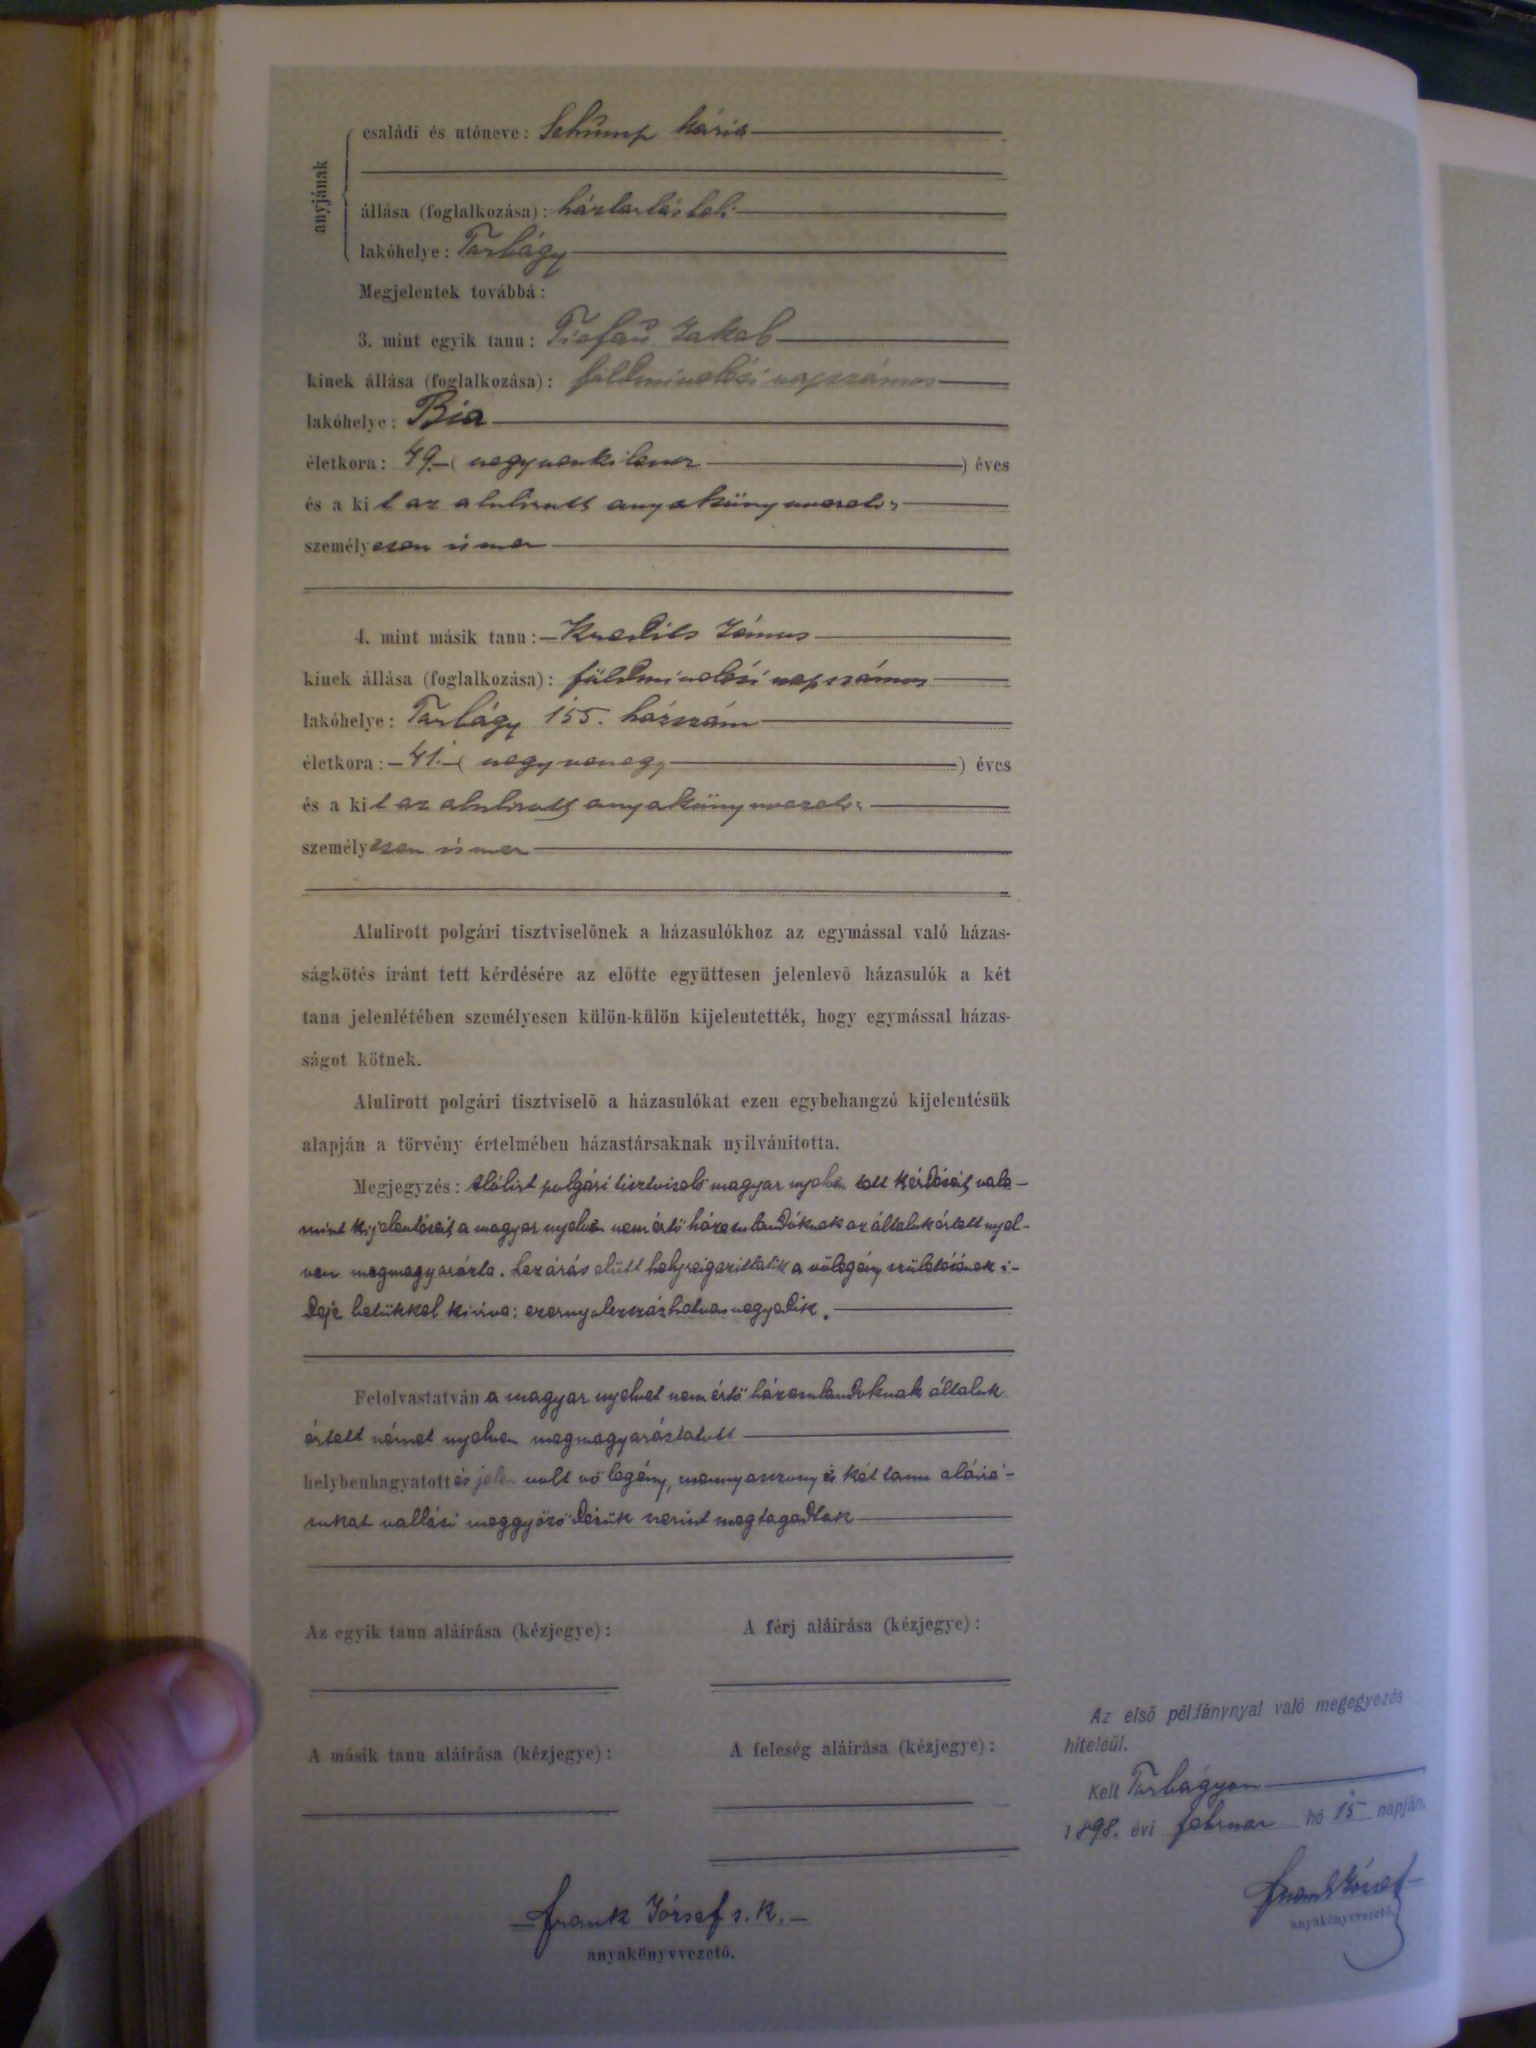 anyjának
családi és utóneve: Schümp Mária
állása (foglalkozása): háztartásbeli
lakóhelye: Torbágy
Megjelentek továbbá:
3. mint egyik tanu: Jakab
kinek állása (foglalkozása): földmivelési napszámos
lakóhelye: Bia
életkora: 49.–( negyvenkilenc ) éves
és a kit az alulirott anyakönyvvezető
személyesen ismer
4. mint másik tanu: – János
kinek állása (foglalkozása): földmivelési napszámos
lakóhelye: Torbágy 155. házszám
életkora: – 41.–( negyvenegy ) éves
és a kit az alulirott anyakönyvvezető
személyesen ismer
Alulirott polgári tisztviselőnek a házasulókhoz az egymással való házas-
ságkötés iránt tett kérdésére az előtte együttesen jelenlevő házasulók a két
tanu jelenlétében személyesen külön-külön kijelentették, hogy egymással házas-
ságot kötnek.
Alulirott polgári tisztviselő a házasulókat ezen egybehangzó kijelentésük
alapján a törvény értelmében házastársaknak nyilvánitotta.
Megjegyzés: Alólirt polgári tisztviselő magyar nyelven tett kérdését, vala-
mint kijelentését, a magyar nyelvet nem értő házasulandóknak az általuk értett nyel-
ven megmagyarázta. Lezárás előtt helyreigazittatik a vőlegény születésének i-
deje betükkel kiirva: ezernyolczszázhatvannegyedik.
Felolvastatván a magyar nyelvet nem értő házasulandoknak általuk
értett német nyelven megmagyaráztatott
helybenhagyatott és jelen volt vőlegény, mennyasszony és két tanu aláirá-
sukat vallási meggyőződésük szerint megtagadták
Az egyik tanu aláirása (kézjegye):
A férj aláirása (kézjegye):
A másik tanu aláirása (kézjegye):
A feleség aláirása (kézjegye):
– Frank József s. k. –
anyakönyvvezető.
Az első példánynyal való megegyezés
hiteléül.
Kelt Torbágyon
1898. évi februar hó 15 napján.
Frank József
anyakönyvvezető.